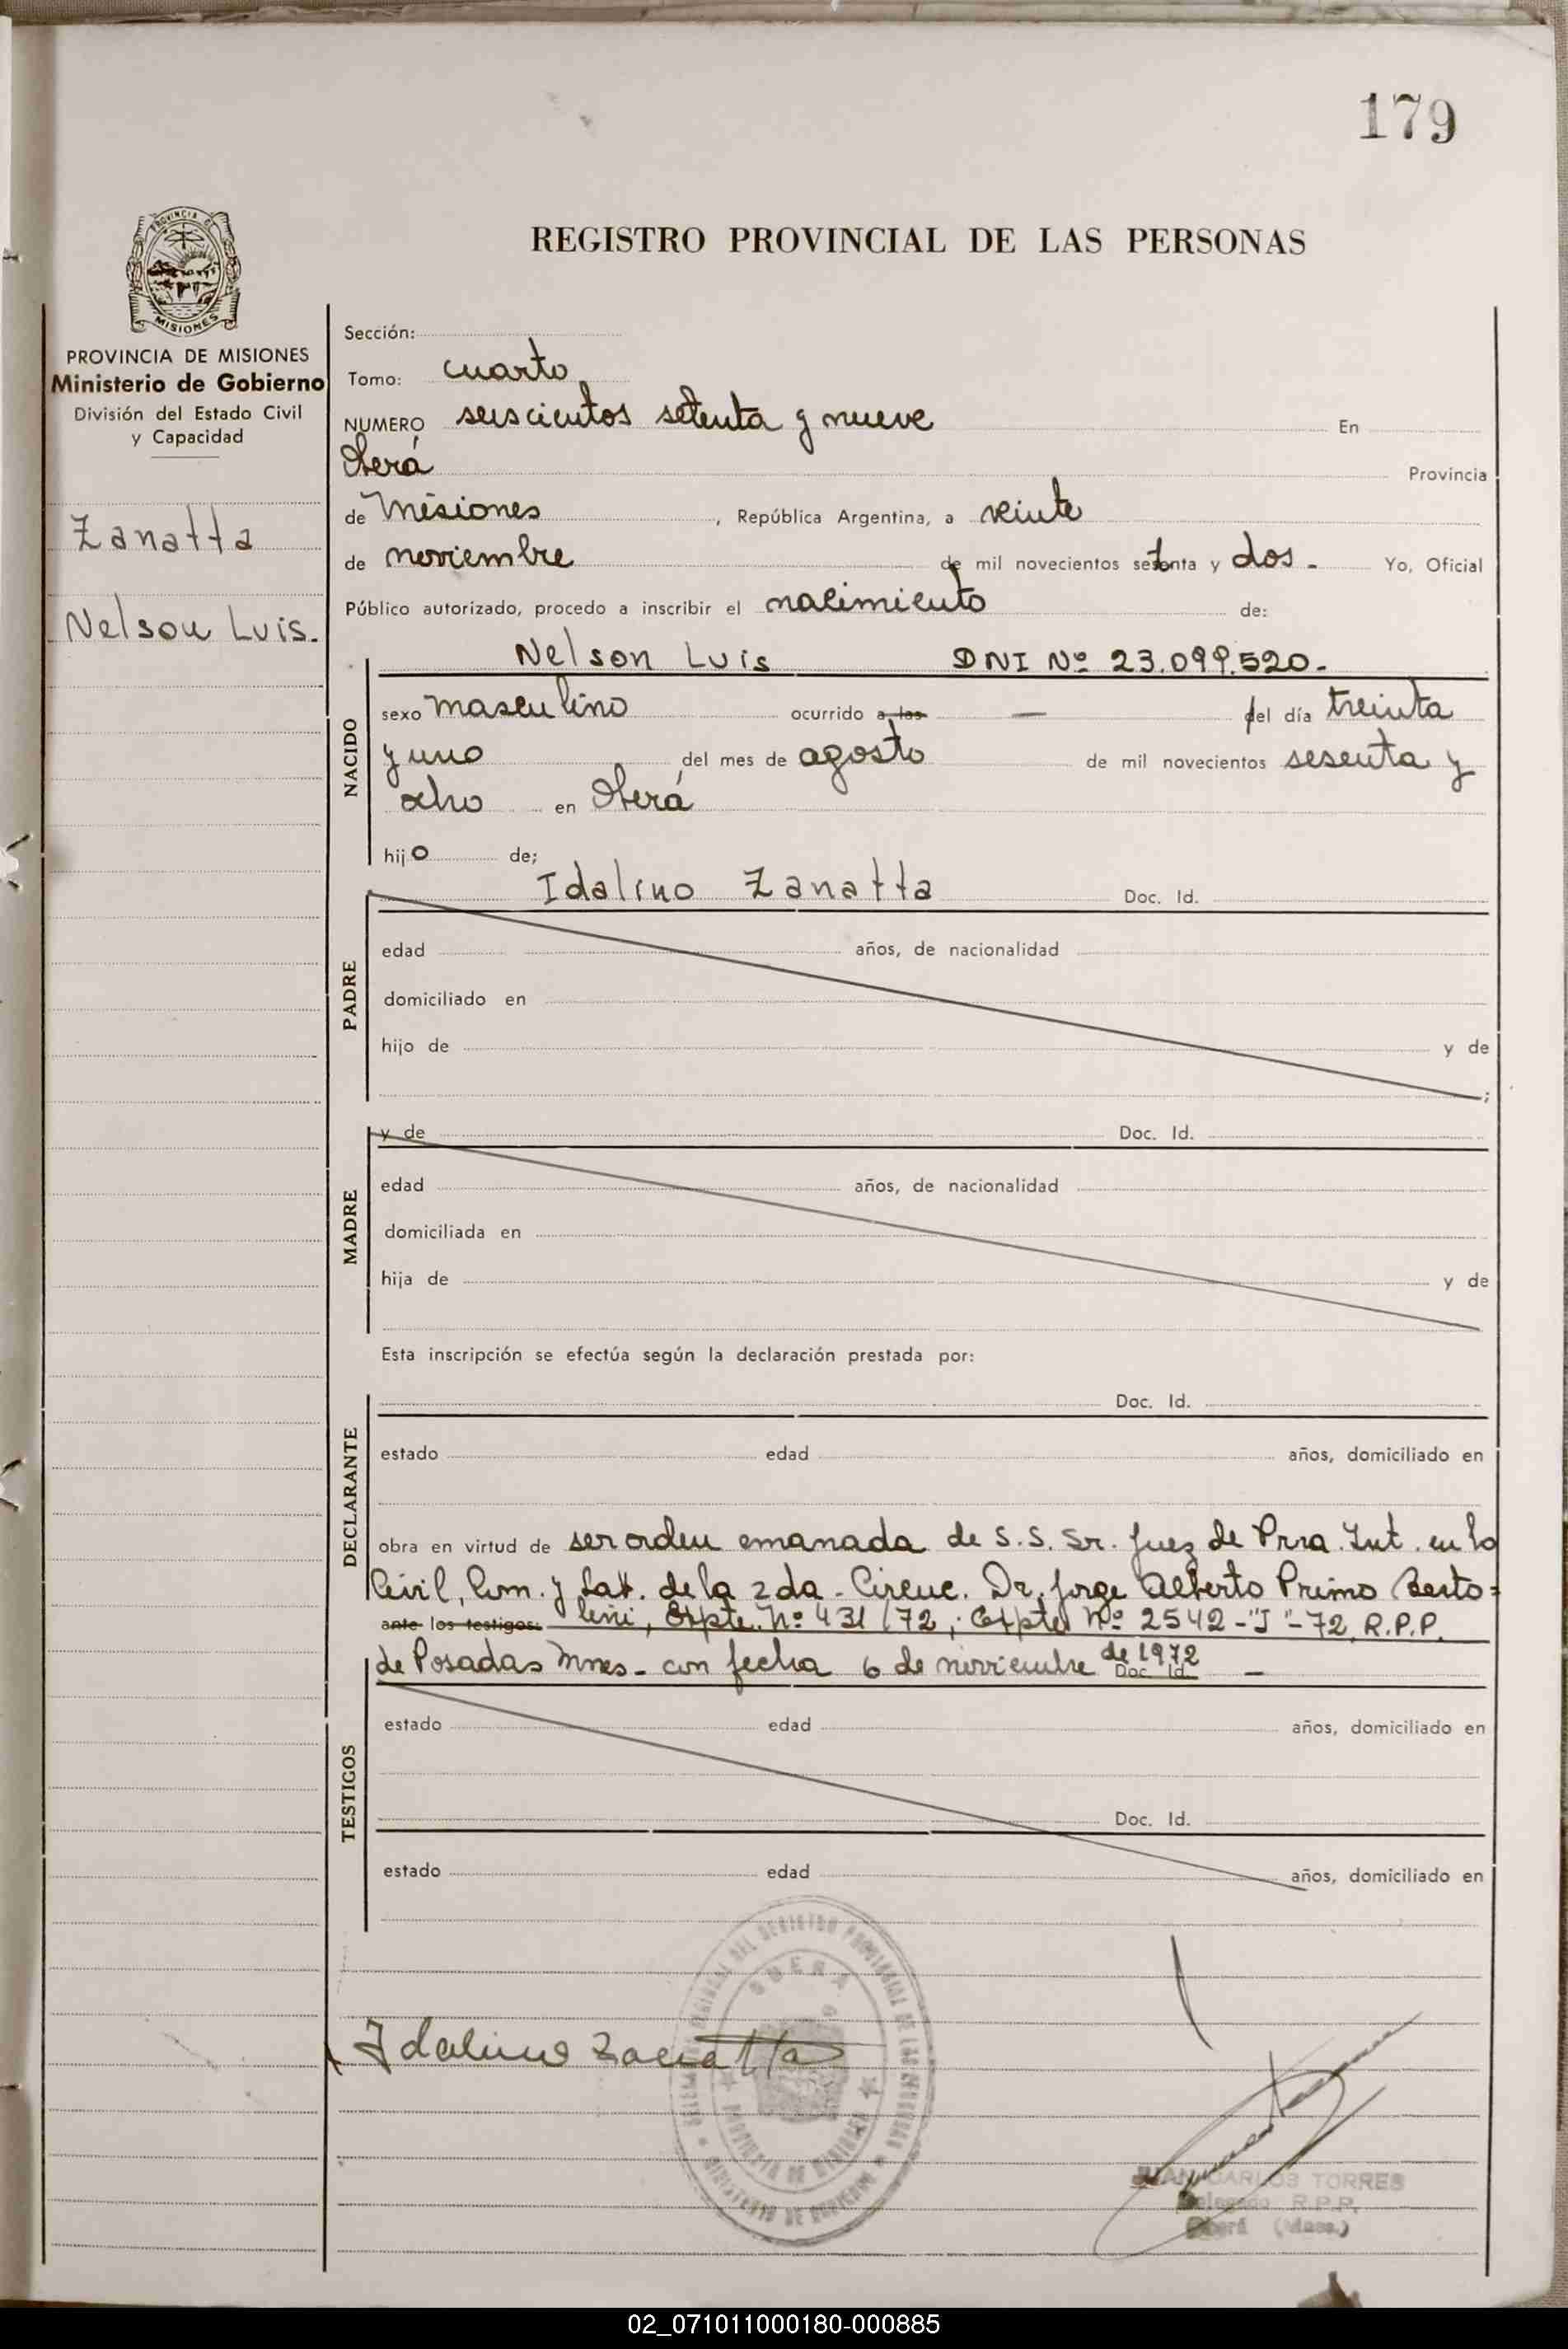 179
REGISTRO PROVINCIAL DE LAS PERSONAS
PROVINCIA DE MISIONES
Ministerio de Gobierno
División del Estado Civil
y Capacidad
Zanatta
Nelson Luis.
Sección:
Tomo: cuarto
NUMERO seiscientos setenta y nueve En
Oberá Provincia
de Misiones, República Argentina, a veinte
de noviembre de mil novecientos setenta y dos - Yo, Oficial
Público autorizado, procedo a inscribir el nacimiento de:
Nelson Luis DNI Nº 23.099.520-
NACIDO
sexo masculino ocurrido a las — del día treinta
y uno del mes de agosto de mil novecientos sesenta y
ocho en Oberá
hijo de;
Idalino Zanatta Doc. Id.
PADRE
edad años, de nacionalidad
domiciliado en
hijo de y de
;
MADRE
y de Doc. Id.
edad años, de nacionalidad
domiciliada en
hija de y de
Esta inscripción se efectúa según la declaración prestada por:
DECLARANTE
Doc. Id.
estado edad años, domiciliado en
obra en virtud de ser orden emanada de S.S. Sr. Juez de Prra. Int. en lo
Civil, Com. y Lab. de la 2da. Circuc. Dr. Jorge Alberto Primo Berto=
ante los testigos: lini, Expte. Nº 431/72, Expte Nº 2542-"J"-72, R.P.P.
de Posadas Mnes- con fecha 6 de noviembre de 1972 Doc. Id. —
TESTIGOS
estado edad años, domiciliado en
Doc. Id.
estado edad años, domiciliado en
Idalino Zanatta
OBERA
PROVINCIA DE MISIONES
MINISTERIO DE GOBIERNO
JUAN CARLOS TORRES
Delegado R.P.P.
Oberá (Mnes.)
02_071011000180-000885